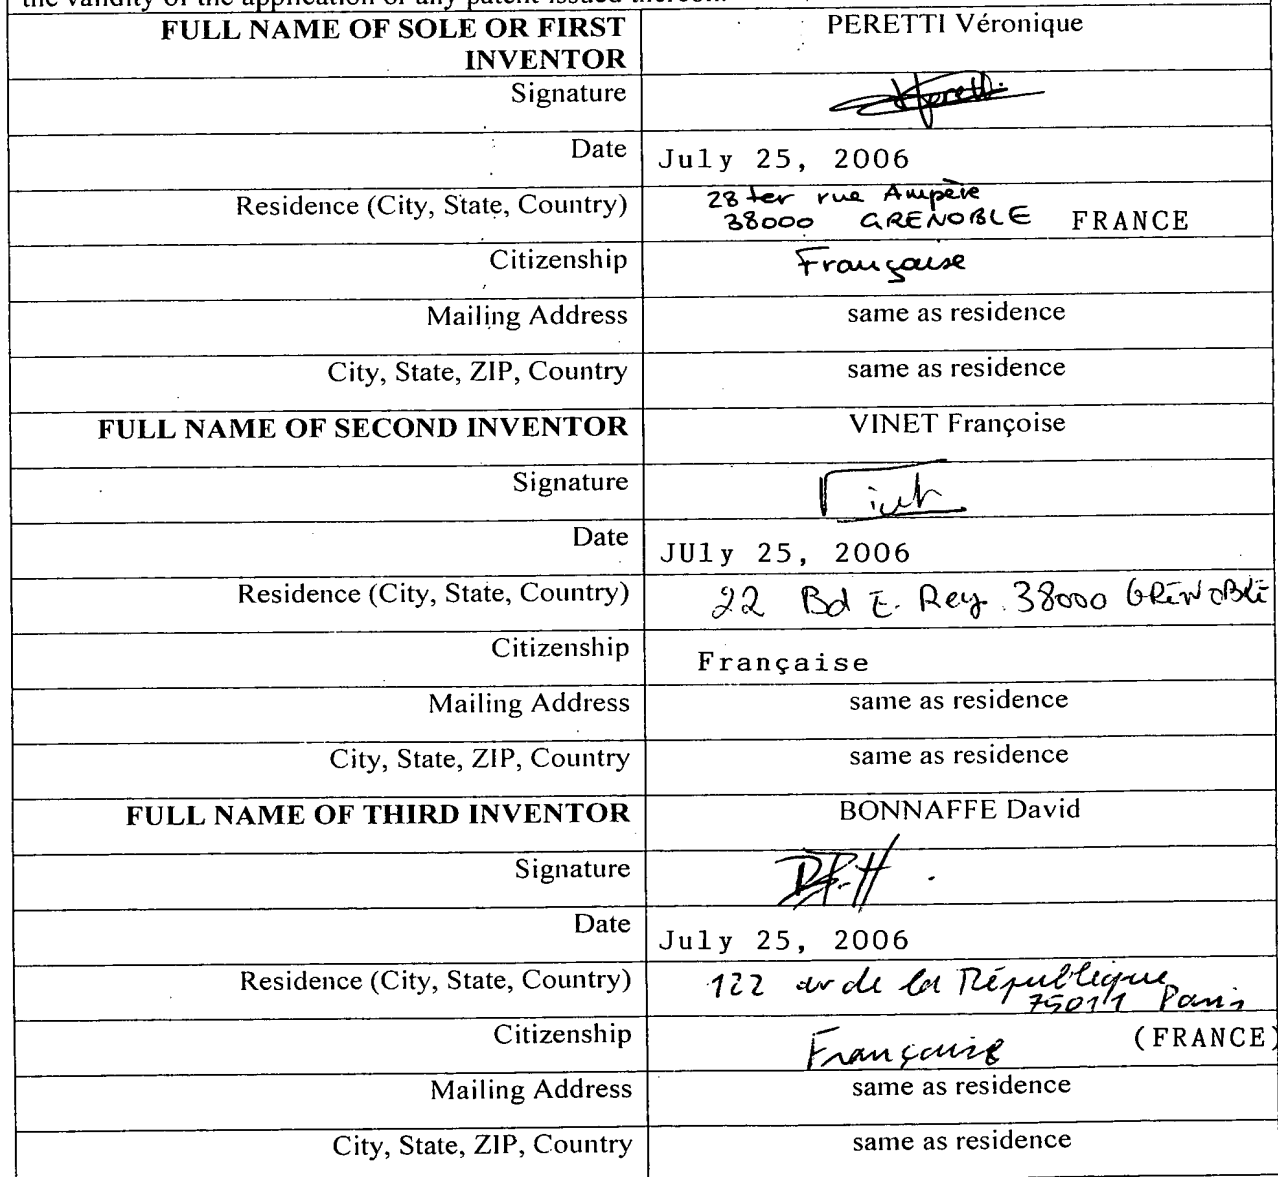 the validity of the application or any patent issued thereon.
FULL NAME OF SOLE OR FIRST PERETTI Véronique
INVENTOR
Signature Peretti
Date July 25, 2006
Residence (City, State, Country) 28 ter rue Ampère
38000 GRENOBLE FRANCE
Citizenship Française
Mailing Address same as residence
City, State, ZIP, Country same as residence
FULL NAME OF SECOND INVENTOR VINET Françoise
Signature
Date JUly 25, 2006
Residence (City, State, Country) 22 Bd E. Rey 38000 GRENOBLE
Citizenship Française
Mailing Address same as residence
City, State, ZIP, Country same as residence
FULL NAME OF THIRD INVENTOR BONNAFFE David
Signature
Date July 25, 2006
Residence (City, State, Country) 122 av de la République
75011 Paris
Citizenship Française (FRANCE)
Mailing Address same as residence
City, State, ZIP, Country same as residence